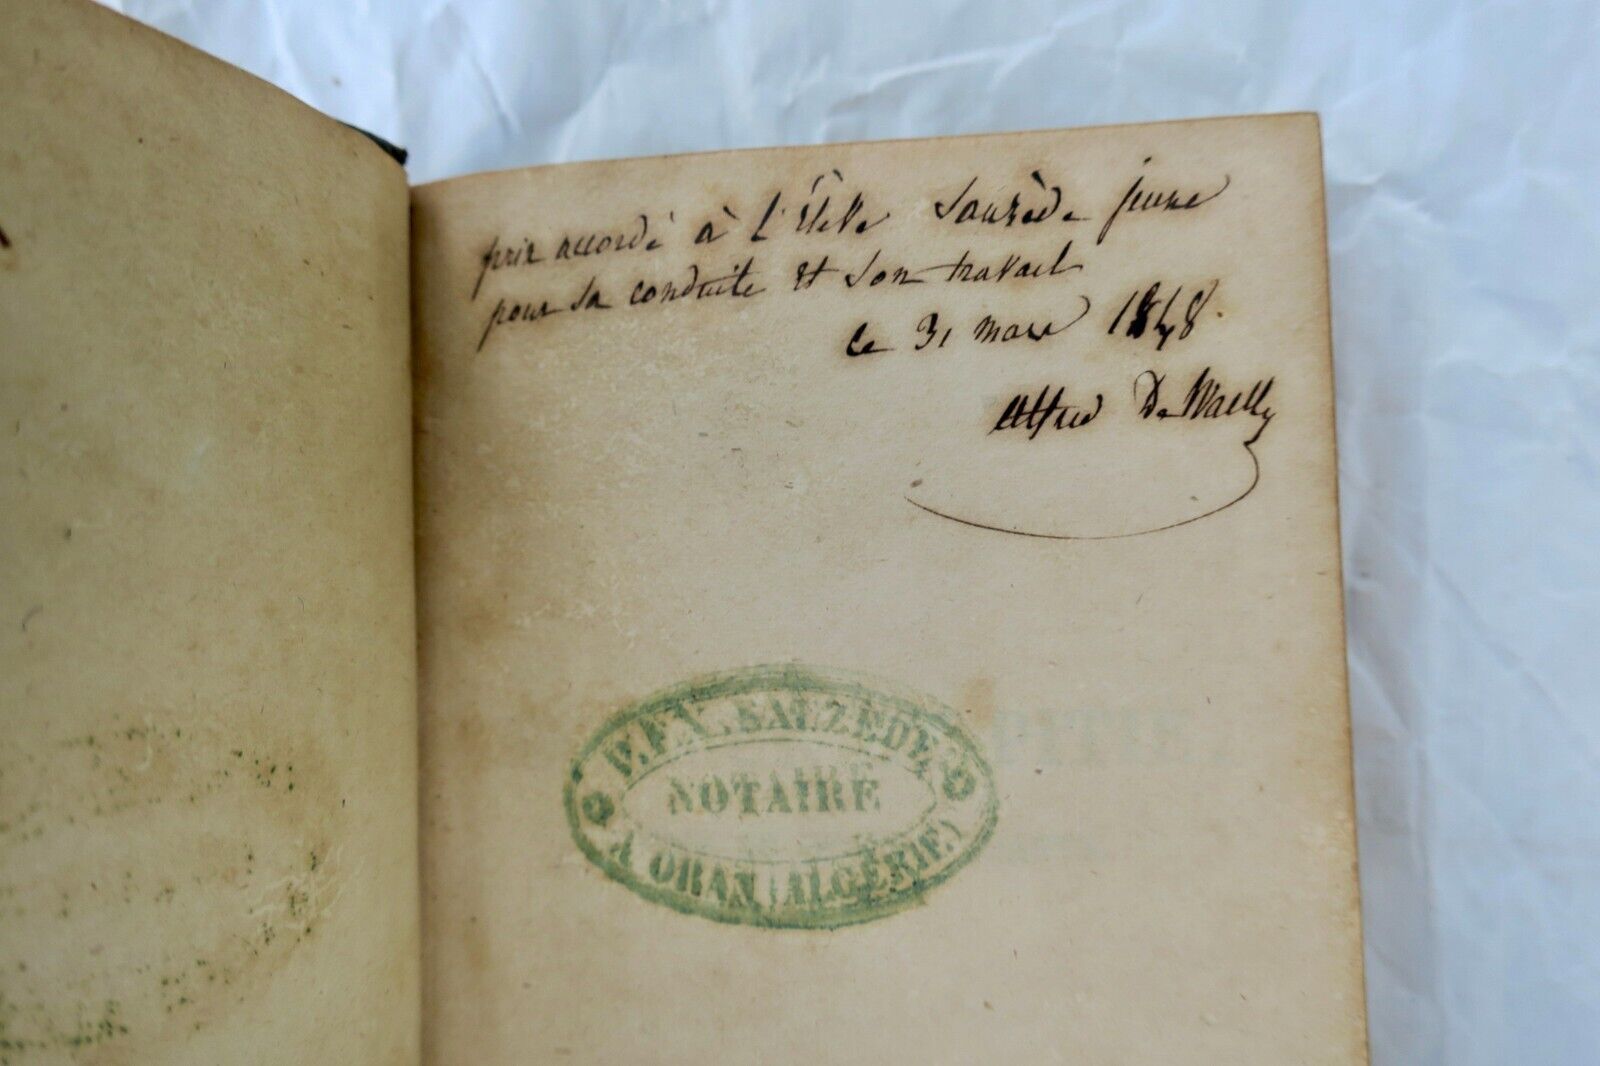 prix accordé à l'Élève Sauzède jeune
pour sa conduite et son travail
le 31 mars 1848.
Alfred De Wailly
P. F. X. SAUZEDE
NOTAIRE
A ORAN (ALGÉRIE)